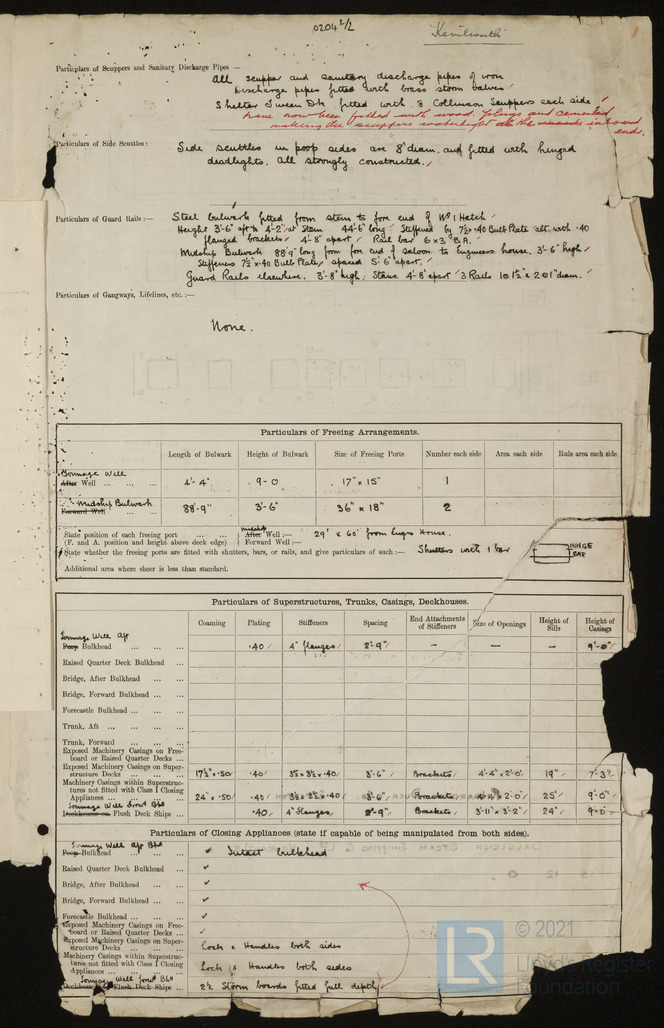 0204 2/2
Kenilworth
Particulars of Scuppers and Sanitary Discharge Pipes —
All scupper and sanitary discharge pipes of iron
Discharge pipes fitted with brass storm valves
Shelter Tween Dk fitted with 8 Collinson Scuppers each side
have now been fitted with wood plugs and cemented
making the scuppers watertight at the inboard
ends.
Particulars of Side Scuttles:
Side scuttles in poop sides are 8" diam. and fitted with hinged
deadlights. All strongly constructed.
Particulars of Guard Rails:—
Steel bulwark fitted from stem to fore end of No 1 Hatch
Height 3'-6" aft to 4'-2" at Stem 44'-6" long Stiffened by 7½ × .40 Bulb Plate alt. with .40
flanged brackets 4'-8" apart Rail bar 6 × 3 B.A.
Midship Bulwark 88'-9" long from fore end of Saloon to Engineers house. 3'-6" high
Stiffeners 7½" × .40 Bulb Plate, spaced 5'-6" apart.
Guard Rails elsewhere. 3'-8" high, Stans. 4'-8" apart 3 Rails 1 @ 1½" & 2 @ 1" diam.
Particulars of Gangways, Lifelines, etc.:—
None.
Particulars of Freeing Arrangements.
Length of Bulwark Height of Bulwark Size of Freeing Ports Number each side Area each side Rule area each side
Tonnage Well
After Well 4'-4" 9-0 17" × 15" 1
Midship Bulwark
Forward Well 88'-9" 3'-6" 36" × 18" 2
State position of each freeing port midship After Well:— 29' & 60' from Engrs House.
(F. and A. position and height above deck edge) Forward Well:—
State whether the freeing ports are fitted with shutters, bars, or rails, and give particulars of such:— Shutters with 1 bar HINGE
BAR
Additional area where sheer is less than standard.
Particulars of Superstructures, Trunks, Casings, Deckhouses.
Coaming Plating Stiffeners Spacing End Attachments of Stiffeners Size of Openings Height of Sills Height of Casings
Tonnage Well Aft
Poop Bulkhead .40 4" flanges 2'-9" — — — 9'-0"
Raised Quarter Deck Bulkhead
Bridge, After Bulkhead
Bridge, Forward Bulkhead
Forecastle Bulkhead
Trunk, Aft
Trunk, Forward
Exposed Machinery Casings on Free-
board or Raised Quarter Decks
Exposed Machinery Casings on Super-
structure Decks 17½" × .50 .40 3½ × 3½ × .40 3'-6" Brackets 4'-4" × 2'-0" 19" 7'-3½"
Machinery Casings within Superstruc-
tures not fitted with Class 1 Closing
Appliances 24" × .50 .40 3½ × 3½ × .40 3'-6" Brackets 4'-4" × 2'-0" 25" 9'-0"
Tonnage Well Forwd Bhd
Deckhouse on Flush Deck Ships .40 4" flanges 2'-9" Brackets 3'-11" × 3'-2" 24" 9'-0"
Particulars of Closing Appliances (state if capable of being manipulated from both sides).
Tonnage Well Aft Bhd
Poop Bulkhead Intact bulkhead
Raised Quarter Deck Bulkhead
Bridge, After Bulkhead
Bridge, Forward Bulkhead
Forecastle Bulkhead
Exposed Machinery Casings on Free-
board or Raised Quarter Decks
Exposed Machinery Casings on Super-
structure Decks Lock & Handles both sides
Machinery Casings within Superstruc-
tures not fitted with Class 1 Closing
Appliances Lock & Handles both sides
Tonnage Well Forwd Bhd
Deckhouse on Flush Deck Ships 2½ Storm boards fitted full depth
© 2021
LR
Lloyd's Register
Foundation